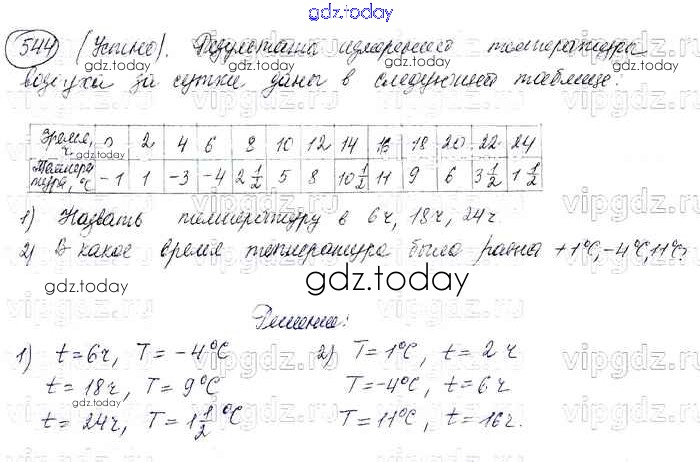 gdz.today
544 (Устно). Результаты измерения температуры
воздуха за сутки даны в следующей таблице:
gdz.today
Время, ч 0 2 4 6 8 10 12 14 16 18 20 22 24
Температура, °C -1 1 -3 -4 2 1/2 5 8 10 1/2 11 9 6 3 1/2 1 1/2
1) Назвать температуру в 6ч, 18ч, 24ч
2) В какое время температура была равна +1°C, -4°C, 11°C?
gdz.today
Решение:
1) t=6ч, T=-4°C 2) T=1°C, t=2ч
t=18ч, T=9°C T=-4°C, t=6ч
t=24ч, T=1 1/2 °C T=11°C, t=16ч.
gdz.today
vipgdz.ru